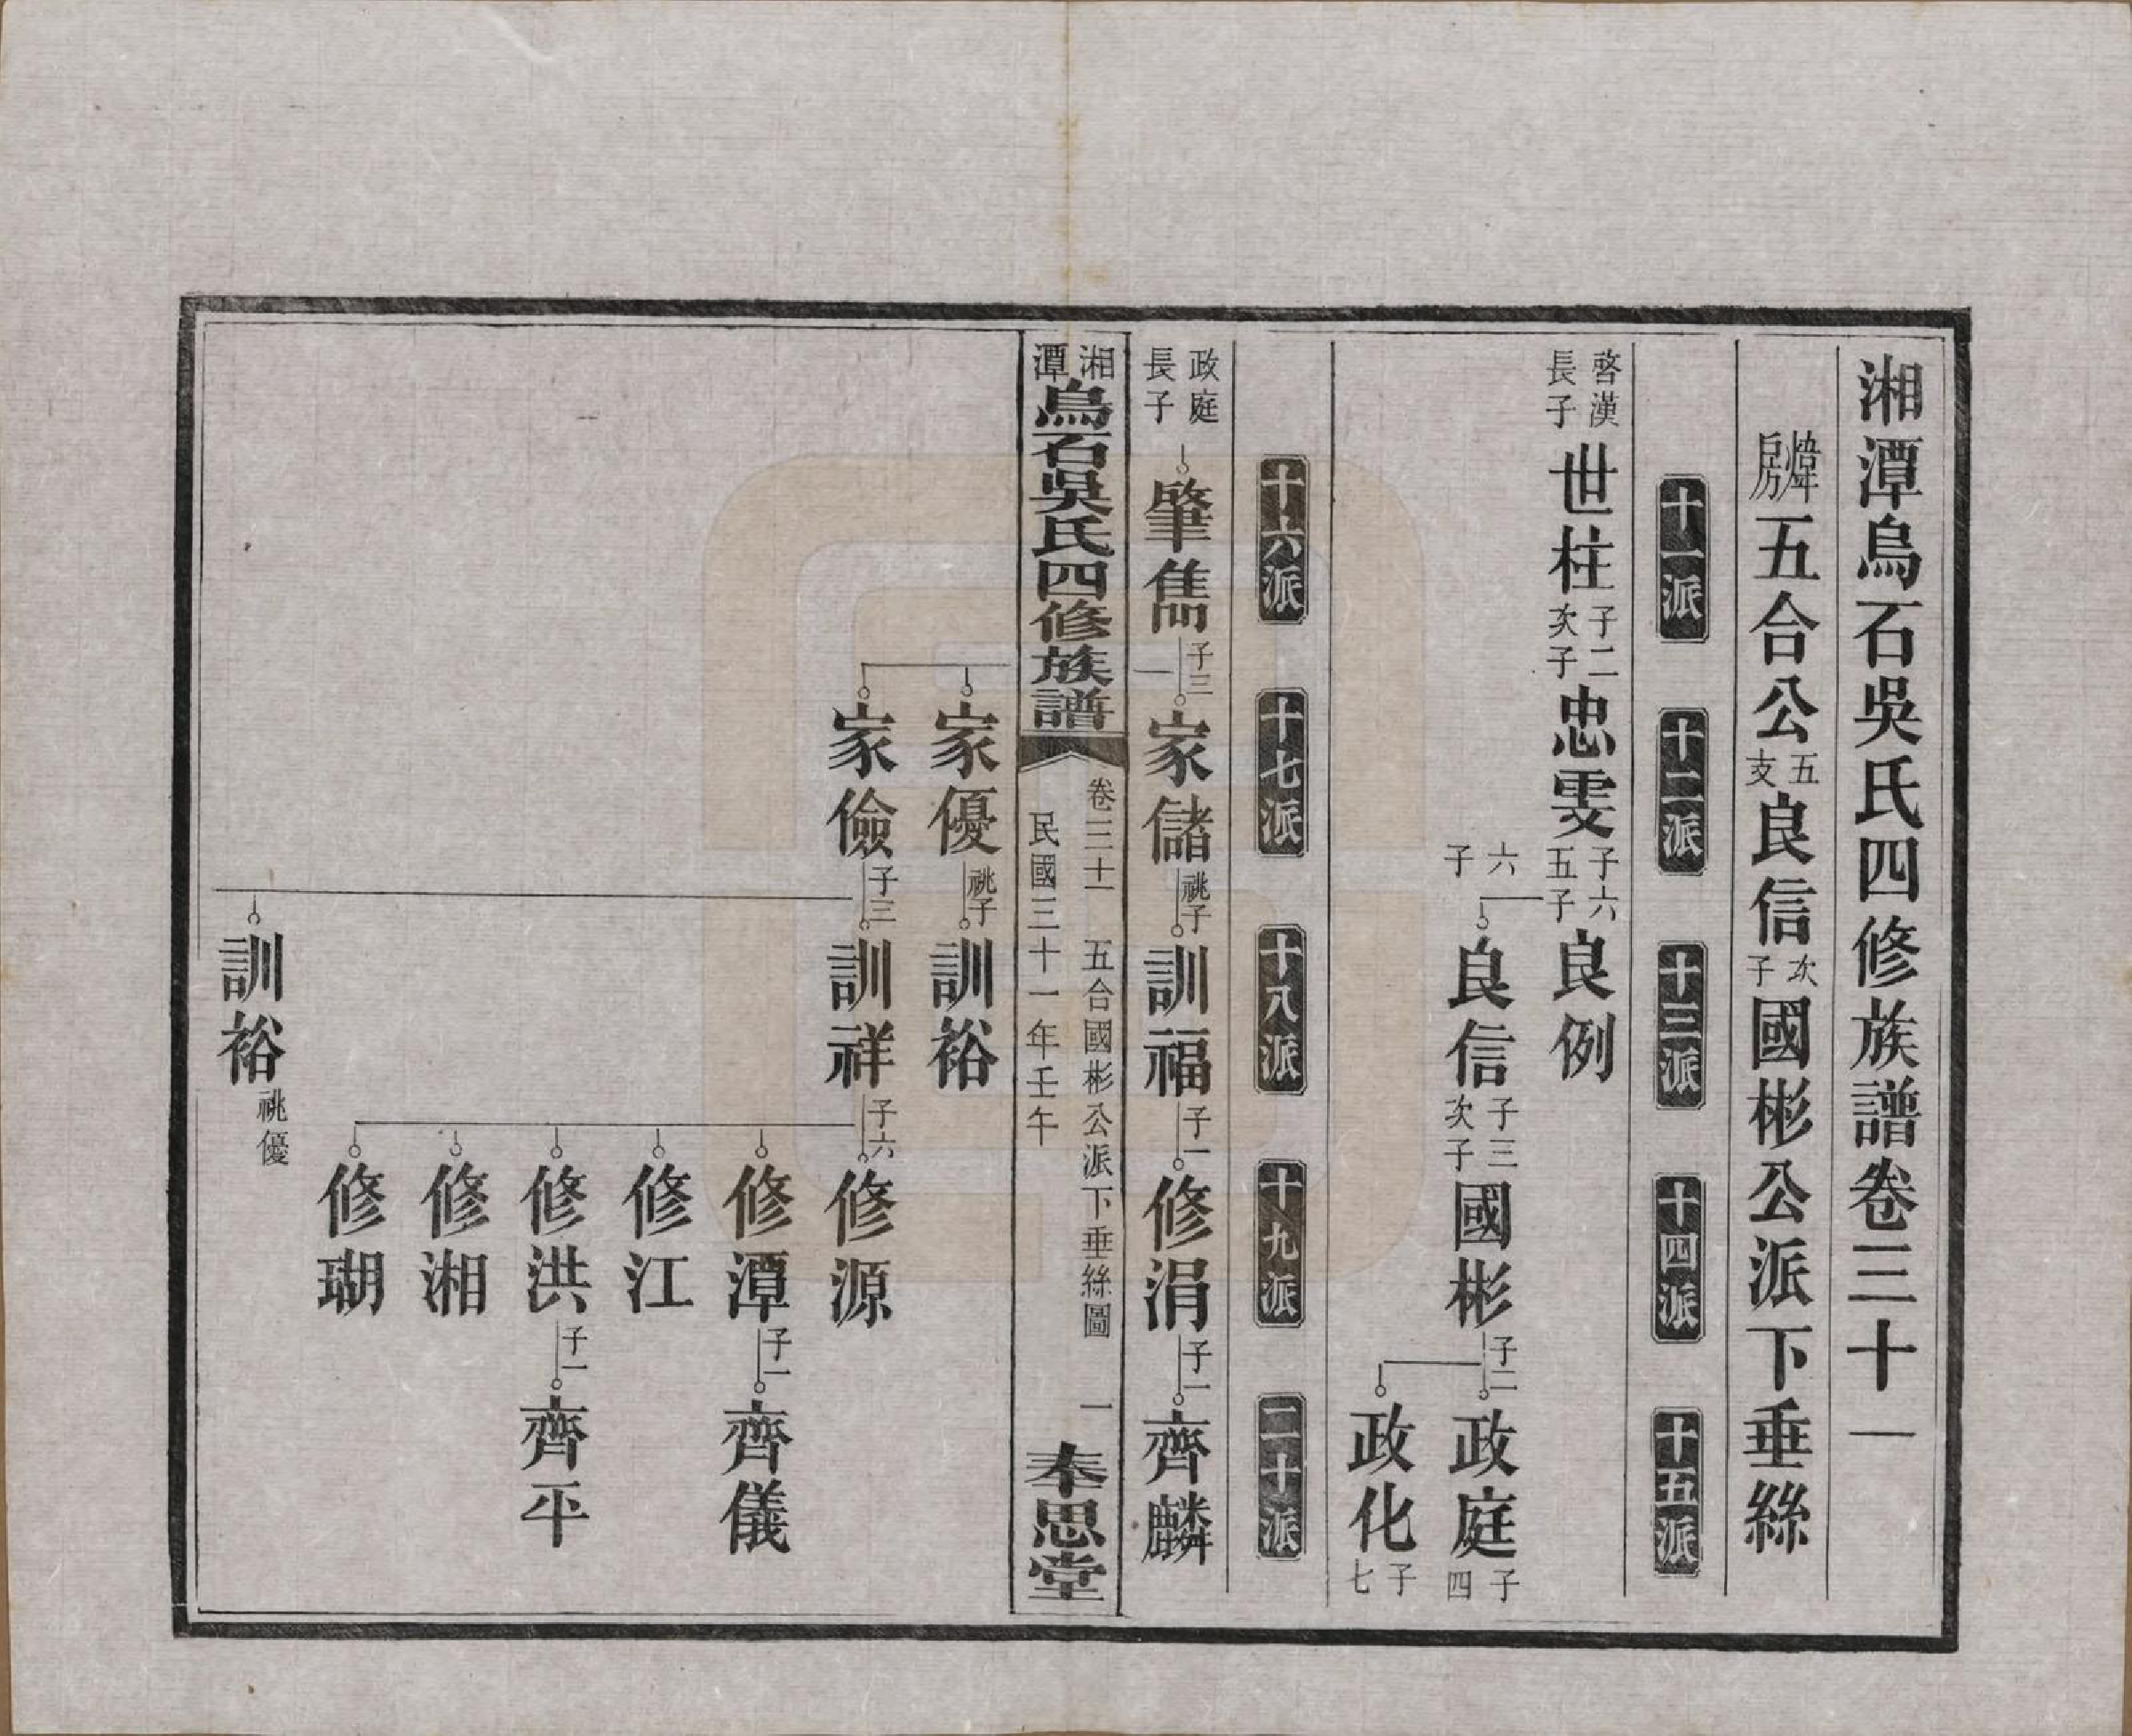 湘潭烏石吳氏四修族譜卷三十一
煒房五合公五支良信次子國彬公派下垂絲
十一派 十二派 十三派 十四派 十五派
啓漢長子 世柱 子二 次子 忠雯 子六 五子 良例
六子 良信 子三 次子 國彬 子二 政庭 子四
政化 子七
十六派 十七派 十八派 十九派 二十派
政庭長子 肇儁 子三 家儲 祧子 訓福 子一 修涓 子一 齊麟
湘潭烏石吳氏四修族譜 卷三十一 五合國彬公派下垂絲圖 一 民國三十一年壬午 奉思堂
家優 祧子 訓裕
家儉 子三 訓祥 子六 修源
修潭 子一 齊儀
修江
修洪 子一 齊平
修湘
修瑚
訓裕 祧優